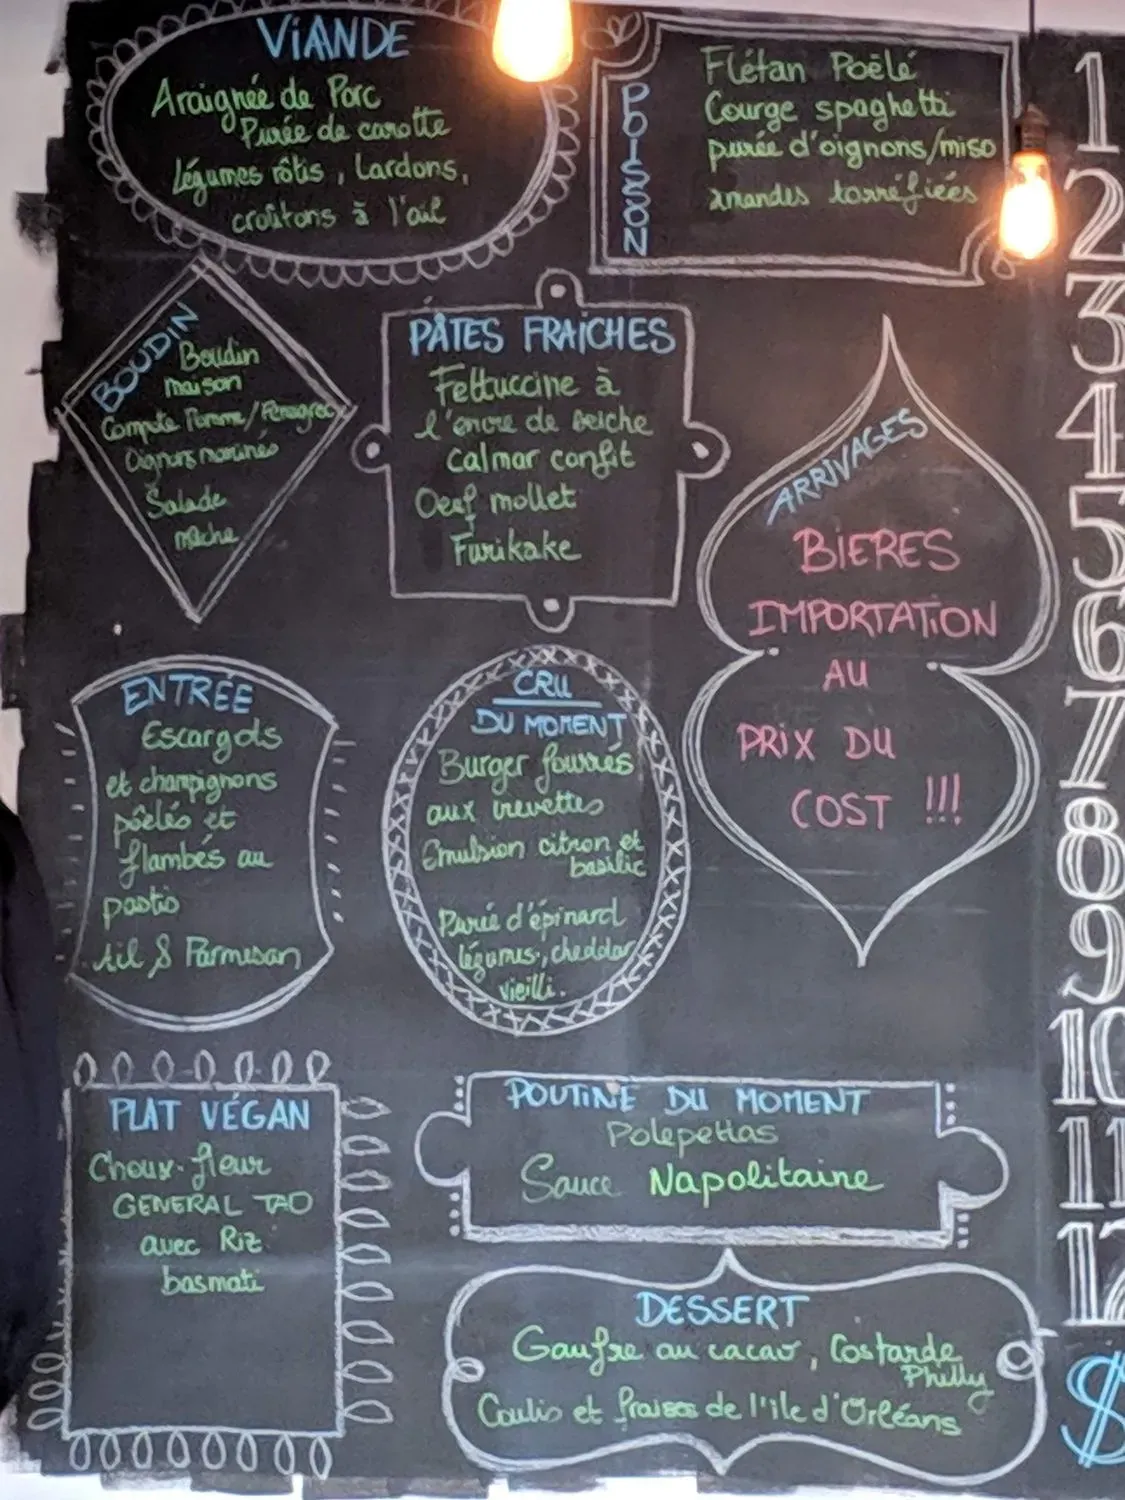 VIANDE
Araignée de Porc
Purée de carotte
légumes rôtis, Lardons,
croûtons à l'ail
POISSON
Flétan Poêlé
Courge spaghetti
purée d'oignons/miso
amandes torréfiées
BOUDIN
Boudin
maison
Compote Pomme/
Oignons marinés
Salade
mâche
PÂTES FRAÎCHES
Fettuccine à
l'encre de seiche
calmar confit
Oeuf mollet
Furikake
ARRIVAGES
BIERES
IMPORTATION
AU
PRIX DU
COST !!!
ENTRÉE
Escargots
et champignons
pôelés et
flambés au
pastis
Ail & Parmesan
CRU
DU MOMENT
Burger fourrés
aux crevettes
Emulsion citron et
basilic
Purée d'épinard
légumes, cheddar
vieilli.
PLAT VÉGAN
Choux-fleur
GENERAL TAO
avec Riz
basmati
POUTINE DU MOMENT
Polepettas
Sauce Napolitaine
DESSERT
Gaufre au cacao, Costarde
Philly
Coulis et fraises de l'île d'Orléans
1
2
3
4
5
6
7
8
9
10
11
12
$